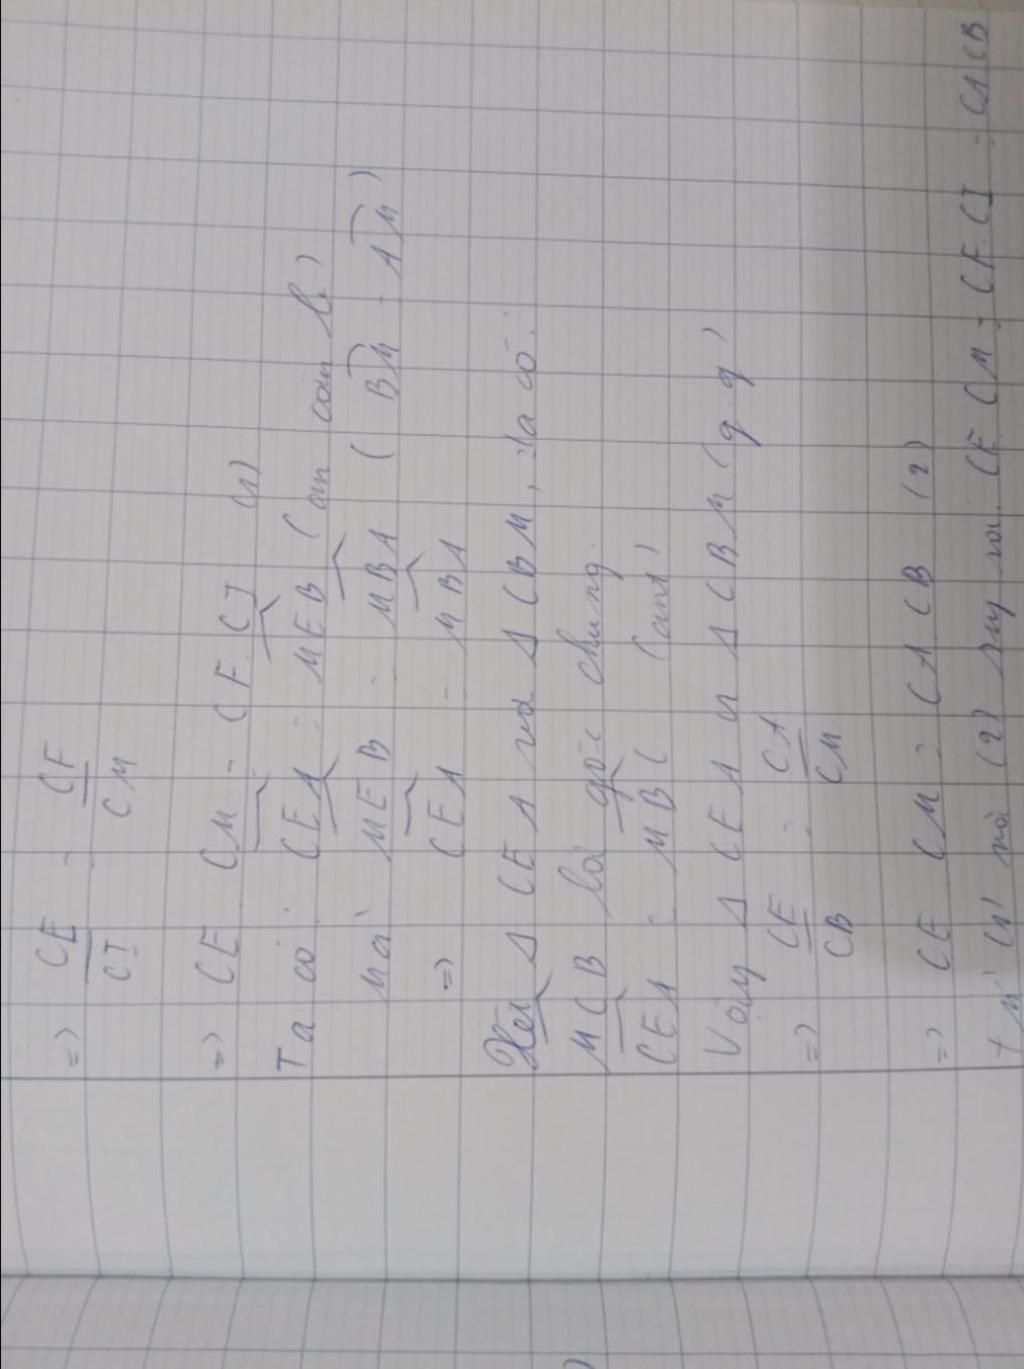 => CE/CI = CF/CM
=> CE . CM = CF . CI (1)
Ta có : CEA = MEB (
mà MEB = MBA ( BM = AM )
=> CEA = MBA
Xét Δ CEA và Δ CBM, ta có :
MCB là góc chung
CEA = MBC (cmt)
Vậy Δ CEA ∽ Δ CBM (g.g)
=> CE/CB = CA/CM
=> CE . CM = CA . CB (2)
Từ (1) và (2) suy ra: CE . CM = CF . CI = CA . CB